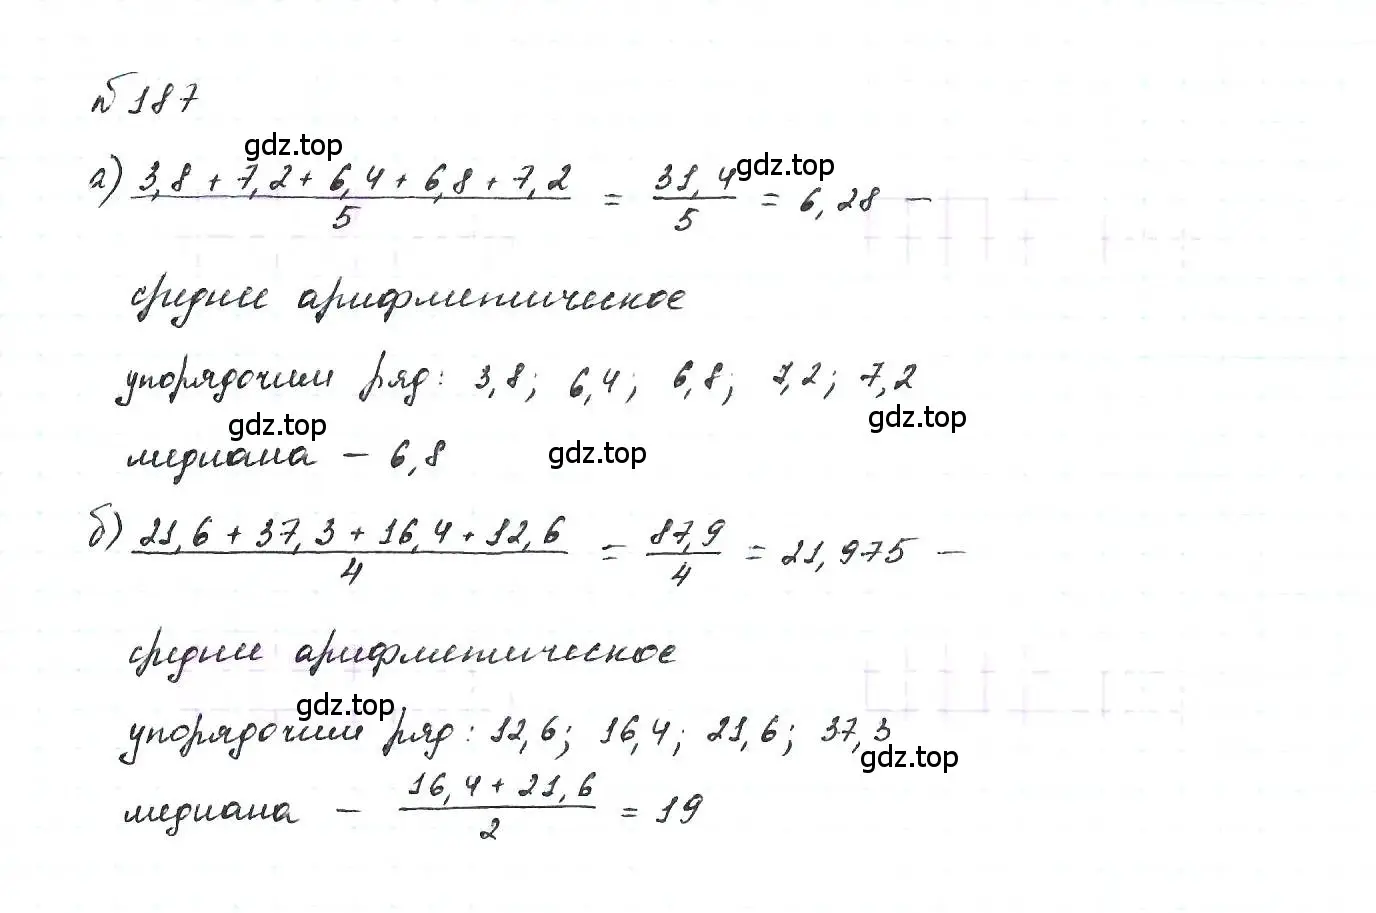 №187
gdz.top
gdz.top
а) 3,8 + 7,2 + 6,4 + 6,8 + 7,2 / 5 = 31,4 / 5 = 6,28 —
среднее арифметическое
упорядочим ряд: 3,8; 6,4; 6,8; 7,2; 7,2
gdz.top
gdz.top
медиана — 6,8
gdz.top
б) 21,6 + 37,3 + 16,4 + 12,6 / 4 = 87,9 / 4 = 21,975 —
среднее арифметическое
gdz.top
упорядочим ряд: 12,6; 16,4; 21,6; 37,3
gdz.top
медиана — 16,4 + 21,6 / 2 = 19